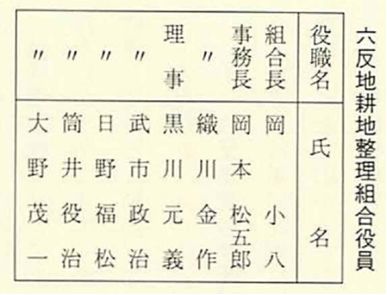 六反地耕地整理組合役員
役職名 氏名
組合長 岡小八
事務長 岡本松五郎
〃 織川金作
理事 黒川元義
〃 武市政治
〃 日野福松
〃 筒井役治
〃 大野茂一